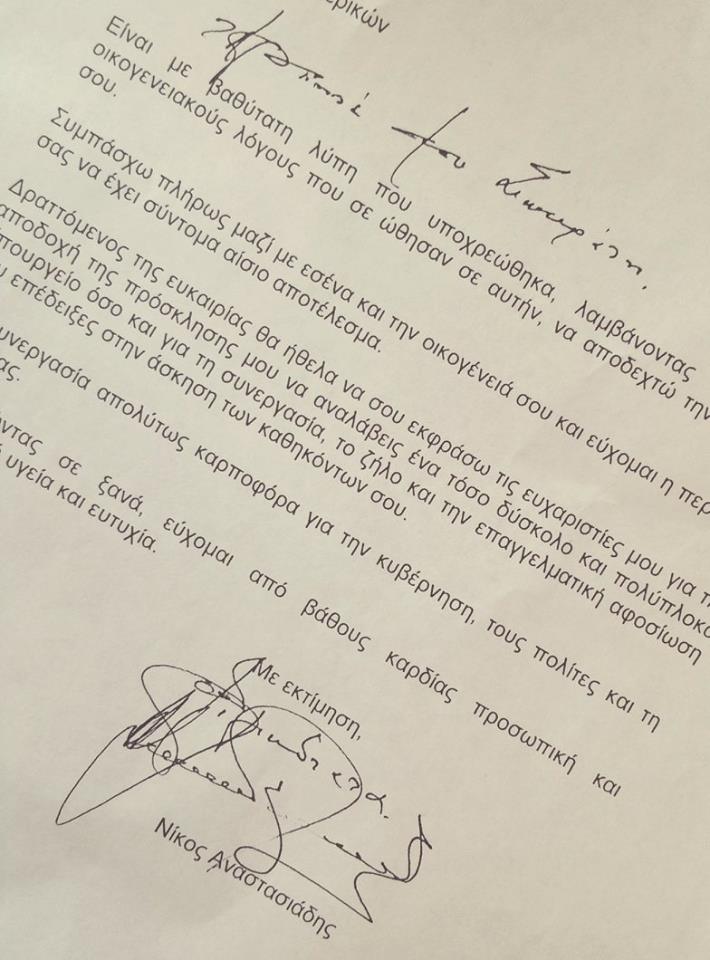 ερικών
Αγαπητέ μου Σωκράτη,
Είναι με βαθύτατη λύπη που υποχρεώθηκα, λαμβάνοντας
οικογενειακούς λόγους που σε ώθησαν σε αυτήν, να αποδεχτώ την
σου.
Συμπάσχω πλήρως μαζί με εσένα και την οικογένειά σου και εύχομαι η περ
σας να έχει σύντομα αίσιο αποτέλεσμα.
Δραττόμενος της ευκαιρίας θα ήθελα να σου εκφράσω τις ευχαριστίες μου για τ
αποδοχή της πρόσκλησης μου να αναλάβεις ένα τόσο δύσκολο και πολύπλοκο
πουργείο όσο και για τη συνεργασία, το ζήλο και την επαγγελματική αφοσίωση
υ επέδειξες στην άσκηση των καθηκόντων σου.
υνεργασία απολύτως καρποφόρα για την κυβέρνηση, τους πολίτες και τη
ας.
ώντας σε ξανά, εύχομαι από βάθους καρδίας προσωπική και
ή υγεία και ευτυχία.
Με εκτίμηση,
Νίκος Αναστασιάδης